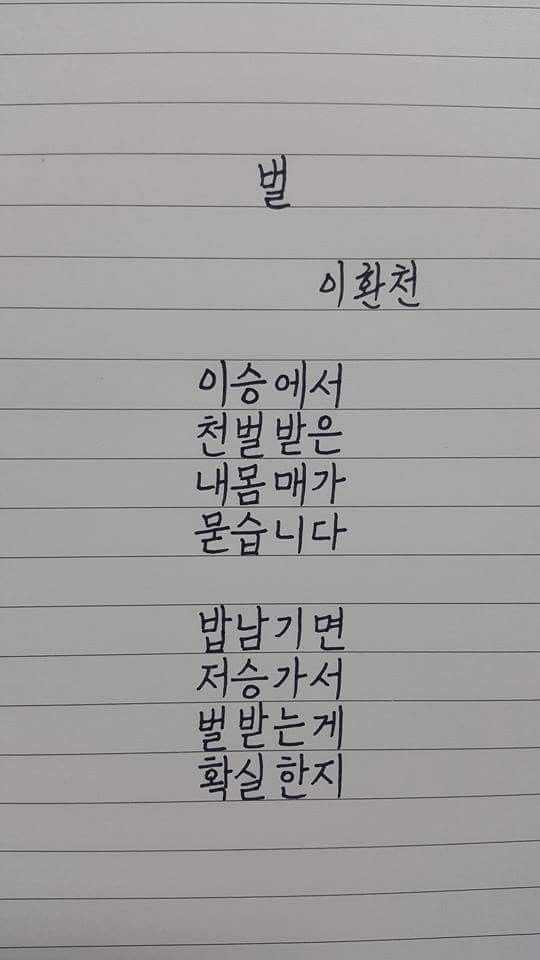 벌
이환천
이승에서
천벌받은
내몸매가
묻습니다
밥남기면
저승가서
벌받는게
확실한지